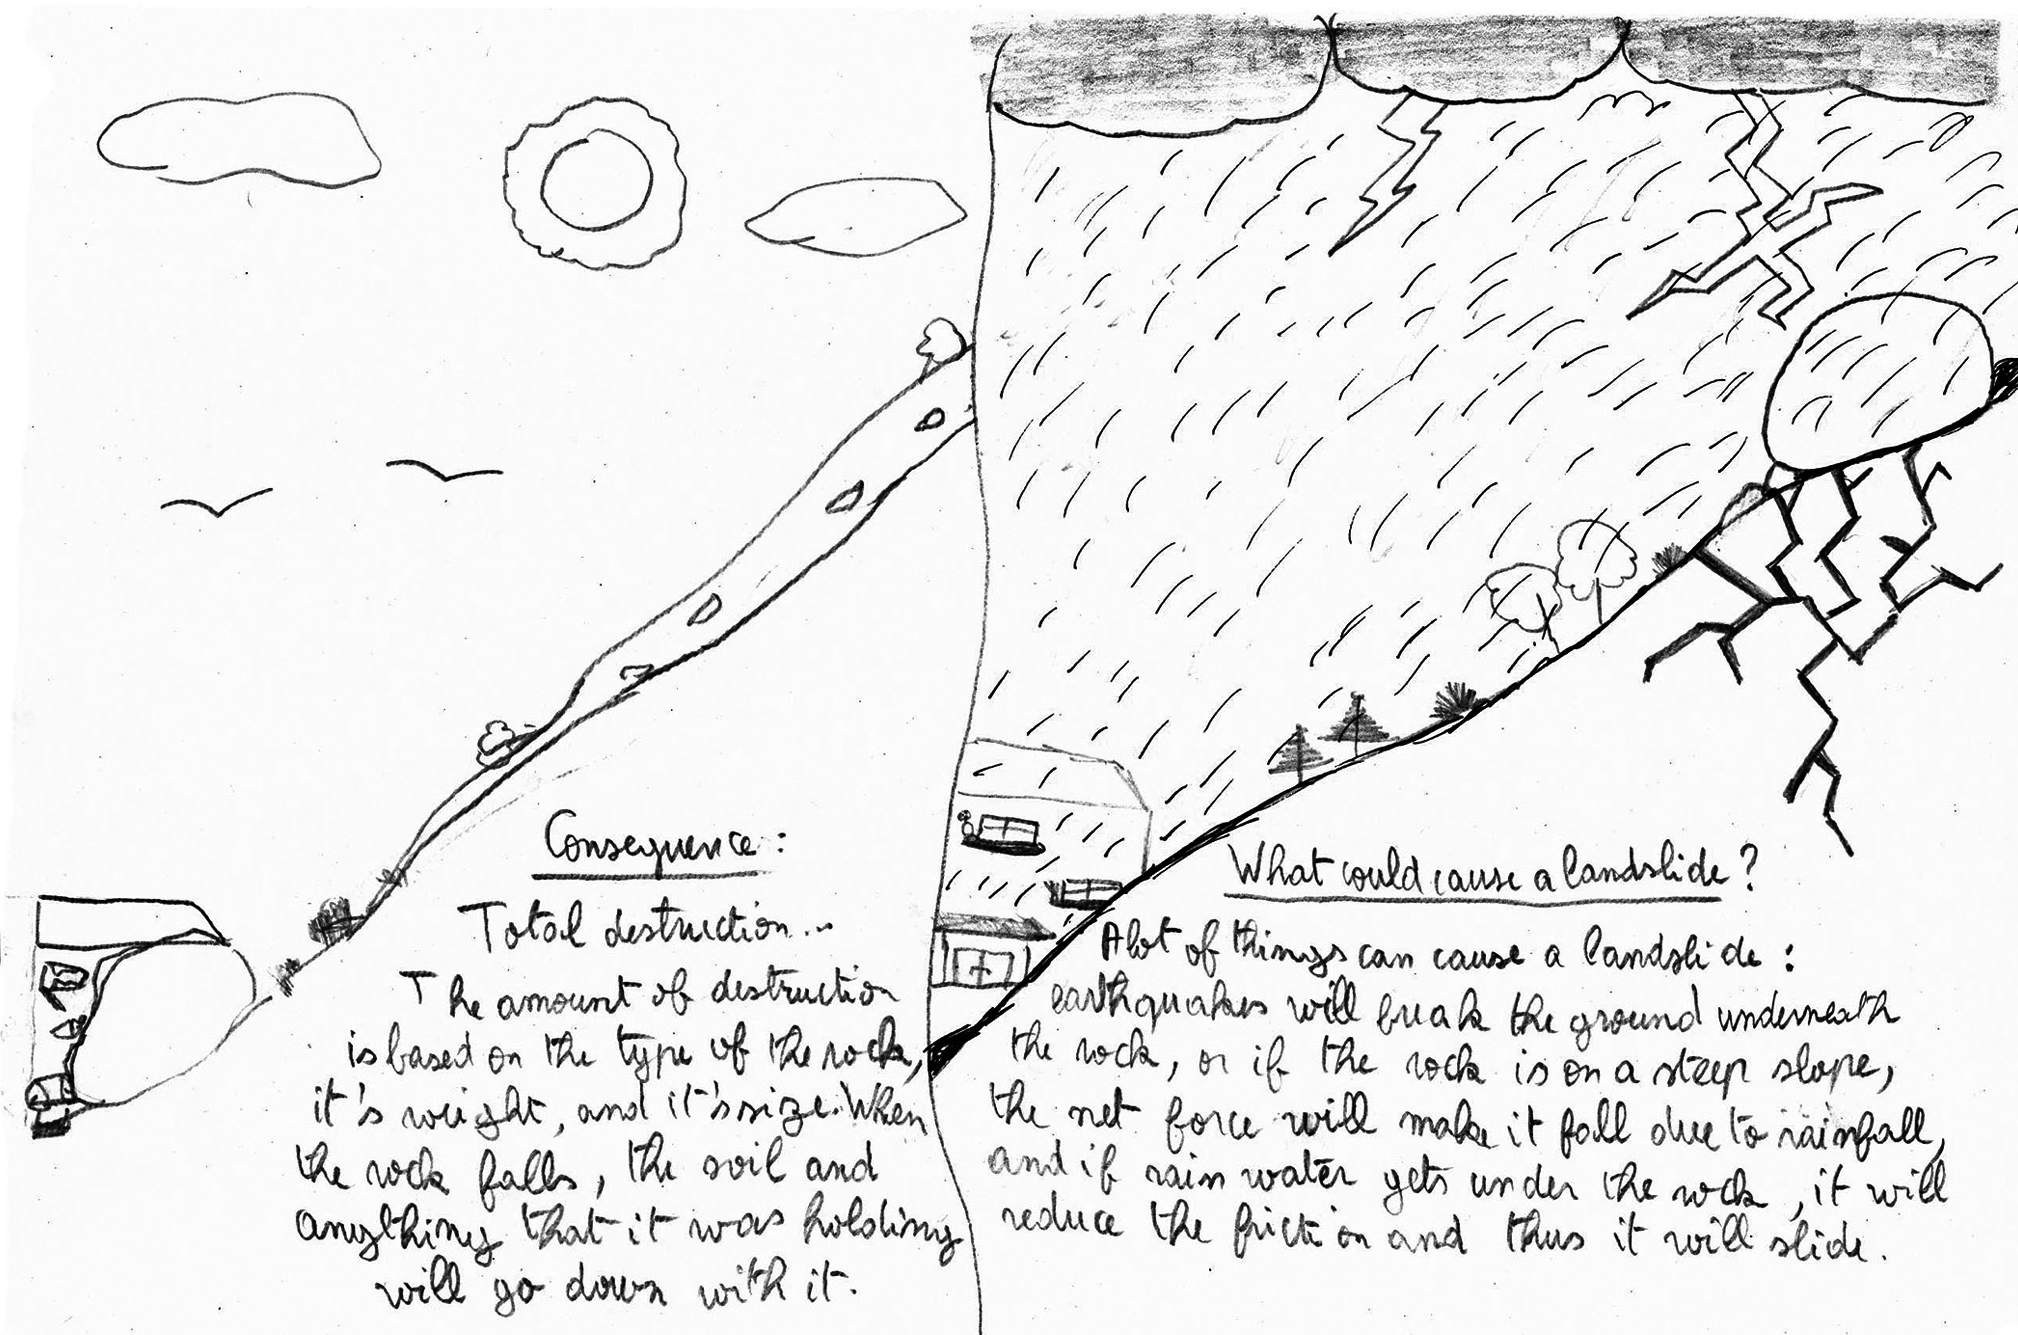 Consequence :
Total destruction...
The amount of destruction
is based on the type of the rock,
it's weight, and it's size. When
the rock falls, the soil and
anything that it was holding
will go down with it.
What could cause a landslide ?
A lot of things can cause a landslide :
earthquakes will break the ground underneath
the rock, or if the rock is on a steep slope,
the net force will make it fall due to rainfall,
and if rain water gets under the rock, it will
reduce the friction and thus it will slide.